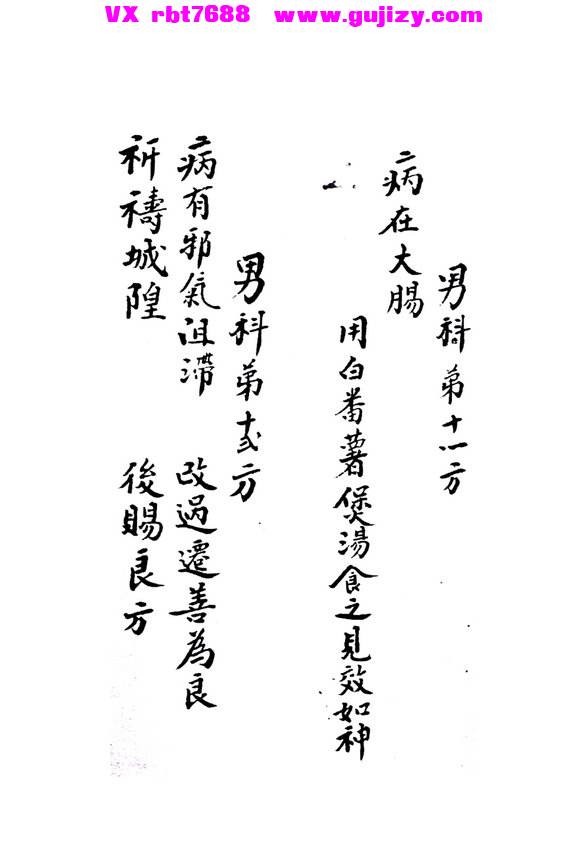 VX rbt7688 www.gujizy.com
男科第十一方
病在大腸
用白番薯煲湯食之見效如神
男科第十弍方
病有邪氣沮滯 改過遷善為良
祈禱城隍 後賜良方